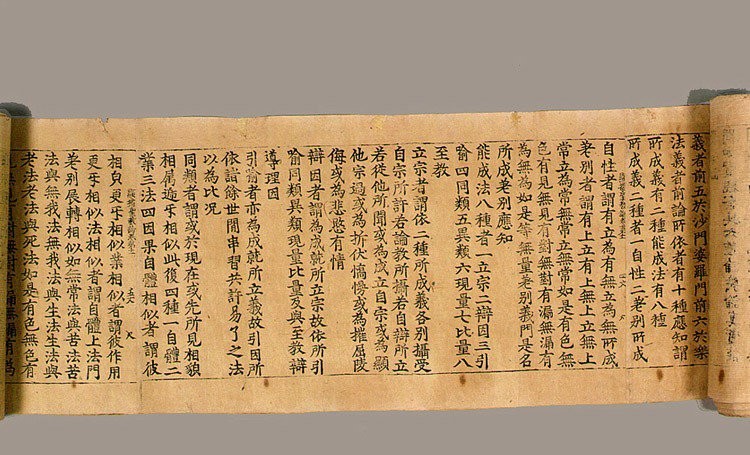 義者前五於沙門婆羅門前六於樂
法義者前論所依者有十種應知謂
所成義有二種能成法有八種
所成義二種者一自性二差別所成
自性者謂有立為有無立為無所成
差別者謂有上立有上無上立無上
常立為常無常立無常如是有色無
色有見無見有對無對有漏無漏有
為無為如是等無量差別義門是名
所成差別應知
能成法八種者一立宗二辯因三引
喻四同類五異類六現量七比量八
至教
立宗者謂依二種所成義各別攝受
自宗所許若論教所攝若自辯所立
若從他所聞或為成立自宗或為顯
他宗過或為折伏憍慢或為摧屈陵
侮或為悲愍有情
辯因者謂為成就所立宗故依所引
喻同類異類現量比量及與至教辯
導理因
引喻者亦為成就所立義故引因所
依諸餘世間串習共許易了之法
以為比況
同類者謂或於現在或先所見相貌
相屬遞互相似此復四種一自體二
業三法四因果自體相似者謂彼
相㒵更互相似業相似者謂彼作用
更互相似法相似者謂自體上法門
差別展轉相似如無常法與苦法苦
法與無我法無我法與生法生法與
老法老法與死法如是有色無色有